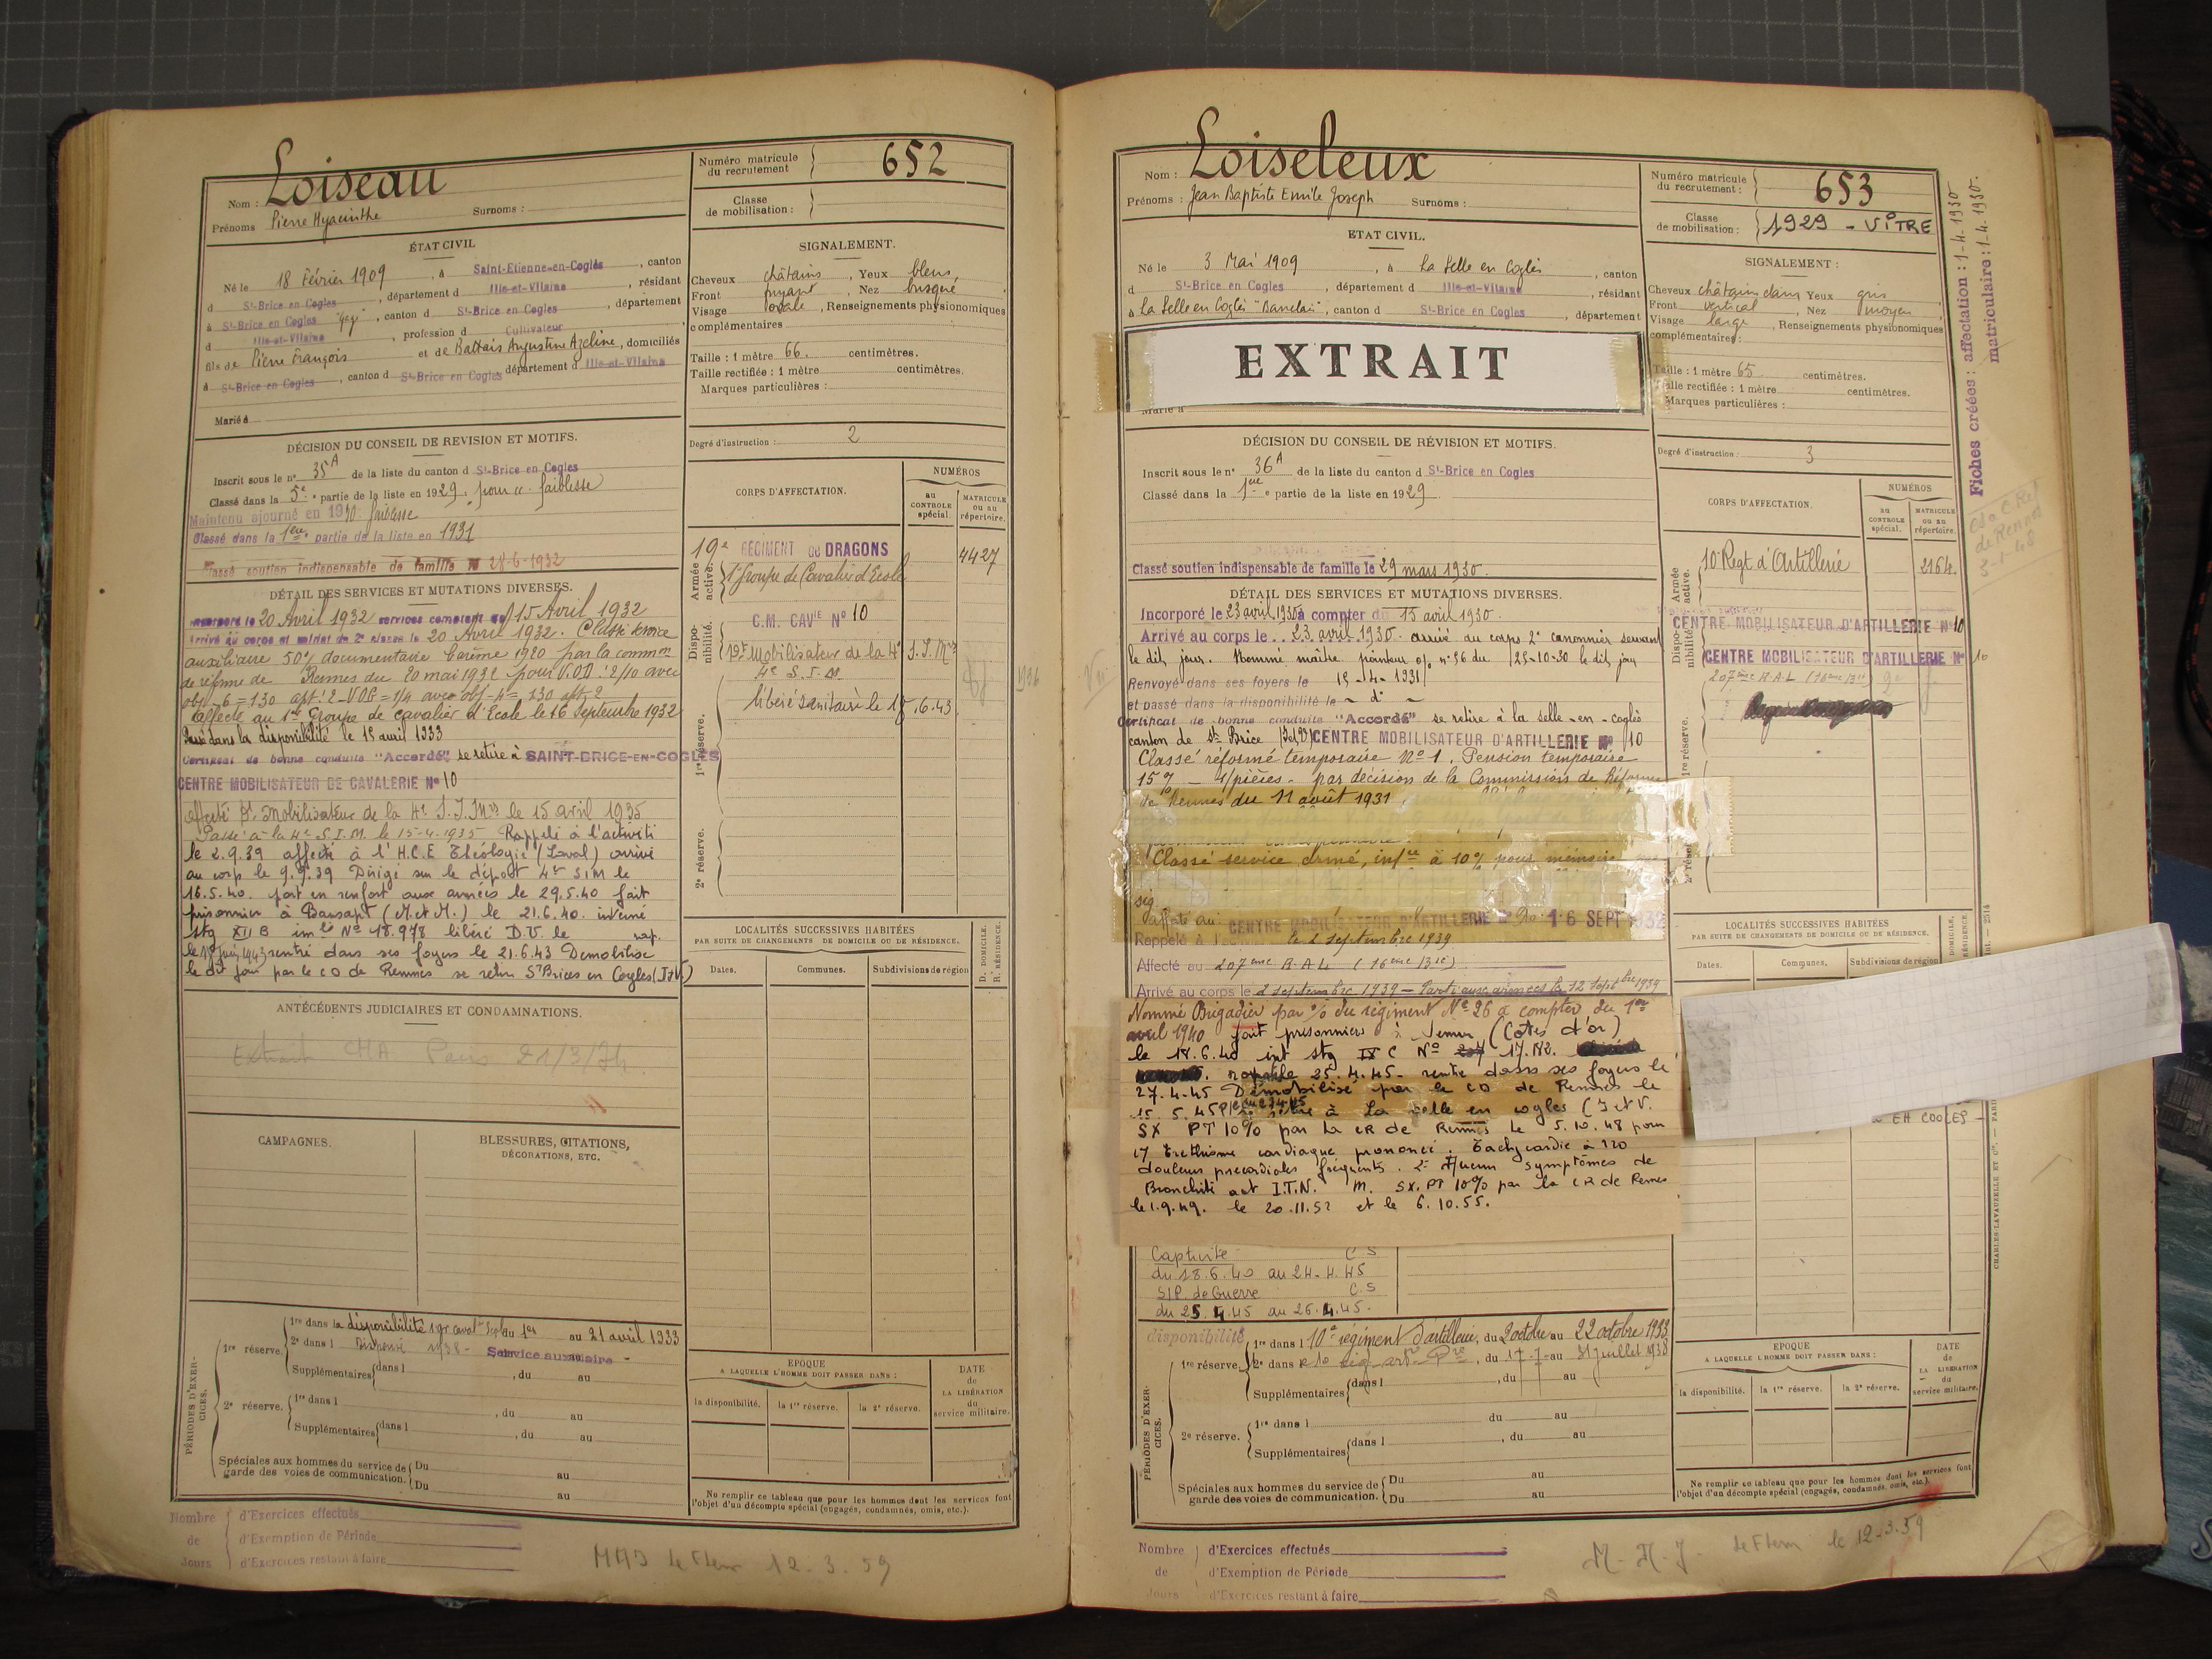 Loiseau
Nom :
Prénoms Pierre Hyacinthe Surnoms :
Numéro matricule du recrutement 652
Classe de mobilisation :
ÉTAT CIVIL
Né le 18 Février 1909, à Saint-Etienne-en-Coglès, canton
d St-Brice en Cogles, département d Ille-et-Vilaine, résidant
à St-Brice en Cogles, canton d St-Brice en Cogles, département
d Ille-et-Vilaine, profession d Cultivateur
fils de Pierre François et de Battais Augustine Azeline, domiciliés
à St-Brice en Cogles, canton d St-Brice en Cogles département d Ille-et-Vilaine
Marié à
SIGNALEMENT.
Cheveux châtains, Yeux bleus,
Front fuyant, Nez busqué
Visage ovale, Renseignements physionomiques
complémentaires
Taille : 1 mètre 66. centimètres.
Taille rectifiée : 1 mètre centimètres.
Marques particulières :
Degré d'instruction : 2
DÉCISION DU CONSEIL DE REVISION ET MOTIFS.
Inscrit sous le n° 35A de la liste du canton d St-Brice en Cogles
Classé dans la 5e partie de la liste en 1929. pour faiblesse
Maintenu ajourné en 1930 faiblesse
Classé dans la 1ère partie de la liste en 1931
Classé soutien indispensable de famille le 28-6-1932
DÉTAIL DES SERVICES ET MUTATIONS DIVERSES.
Incorporé le 20 Avril 1932 services comptent du 15 Avril 1932
Arrivé au corps et soldat de 2e classe le 20 Avril 1932. Classé service
auxiliaire 50% documentaire barème 1920 par la common
de réforme de Rennes du 20 mai 1932 pour V.O.D : 2/10 avec
Affecté au 1er Groupe de cavalier d'Ecole le 16 septembre 1932
Passé dans la disponibilité le 15 avril 1933
Certificat de bonne conduite "Accordé", se retire à SAINT-BRICE-EN-COGLES
CENTRE MOBILISATEUR DE CAVALERIE N° 10
le 15 avril 1935
Passé à la 4e S.I.M. le 15-4-1935 Rappelé à l'activité
le 2.9.39 affecté à l'H.C.E Théologie (Laval) arrivé
au corp le 9.9.39 Dirigé sur le dépôt 4e SIM le
16.5.40. part en renfort aux armées le 29.5.40 fait
prisonnier à Bansapt (M.et M.) le 21.6.40. interné
stg XII B im le N° 18.978 libéré D.V. le rap.
le 18 juin 1943 rentré dans ses foyers le 21.6.43 Démobilisé
le dit jour par le CO de Rennes se retire St Brices en Cogles (I&V)
CORPS D'AFFECTATION.
NUMÉROS
au CONTROLE spécial.
MATRICULE ou au répertoire.
Armée active.
19e RÉGIMENT DE DRAGONS 4427
1er Groupe de Cavalier d'Ecole
Disponibilité.
C.M. CAVIE N° 10
Mobilisateur de la 4e
4e S.I.M.
libéré sanitaire le 18.6.43
1re réserve.
2e réserve.
ANTÉCÉDENTS JUDICIAIRES ET CONDAMNATIONS.
Extrait CHA Paris 21/3/74
LOCALITÉS SUCCESSIVES HABITÉES
PAR SUITE DE CHANGEMENTS DE DOMICILE OU DE RÉSIDENCE.
Dates. Communes. Subdivisions de région
D. DOMICILE. R. RÉSIDENCE.
CAMPAGNES.
BLESSURES, CITATIONS,
DÉCORATIONS, ETC.
PÉRIODES D'EXERCICES.
1re réserve. 1re dans la disponibilité au 21 avril 1933
2e dans l Dispensé 1938 - Service auxiliaire -
Supplémentaires dans l , du au
2e réserve. 1re dans l , du au
Supplémentaires dans l , du au
Spéciales aux hommes du service de garde des voies de communication. Du au
Du au
EPOQUE
A LAQUELLE L'HOMME DOIT PASSER DANS :
la disponibilité. la 1re réserve. la 2e réserve.
DATE de LA LIBÉRATION du service militaire.
Ne remplir ce tableau que pour les hommes dont les services font
l'objet d'un décompte spécial (engagés, condamnés, omis, etc.).
Nombre de Jours
d'Exercices effectués
d'Exemption de Période
d'Exercices restant à faire
12.3.59
Loiseleux
Nom :
Prénoms : Jean Baptiste Emile Joseph Surnoms :
Numéro matricule du recrutement : 653
Classe de mobilisation : 1929 - VITRÉ
ETAT CIVIL.
Né le 3 Mai 1909, à La Selle en Coglès, canton
d St-Brice en Cogles, département d Ille-et-Vilaine, résidant
à La Selle en Coglès, canton d St-Brice en Cogles département
EXTRAIT
Marié à
SIGNALEMENT :
Cheveux châtain clair Yeux gris
Front vertical, Nez moyen
Visage large, Renseignements physionomiques
complémentaires :
Taille : 1 mètre 65 centimètres.
Taille rectifiée : 1 mètre centimètres.
Marques particulières :
Degré d'instruction : 3
Fiches créées : affectation : 1-4-1930
matriculaire : 1-4-1930.
DÉCISION DU CONSEIL DE RÉVISION ET MOTIFS.
Inscrit sous le n° 36A de la liste du canton d St-Brice en Cogles
Classé dans la 1ère partie de la liste en 1929
Classé soutien indispensable de famille le 29 mars 1930.
DÉTAIL DES SERVICES ET MUTATIONS DIVERSES.
Incorporé le 23 avril 1930 à compter du 15 avril 1930.
Arrivé au corps le 23 avril 1930. arrivé au corps 2e canonnier servant
le dit jour. Nommé maître pointeur o/ n° 96 du 25-10-30 le dit jour
Renvoyé dans ses foyers le 15-4-1931
et passé dans la disponibilité le - d° -
Certificat de bonne conduite "Accordé" se retire à la selle-en-coglès
canton de St Brice (I et V) CENTRE MOBILISATEUR D'ARTILLERIE N° 10
Classé réformé temporaire N° 1. Pension temporaire
15% - 4 pièces - par décision de la Commission de Réforme
de Rennes du 11 août 1931.
Classé service armé, inf re à 10% pour mémoire
sig
Affecté au CENTRE MOBILISATEUR D'ARTILLERIE N° 10 16 SEPT 1932
Rappelé à l' le 2 septembre 1939
Affecté au 207ème R.A.L (16ème Bie)
Arrivé au corps le 2 septembre 1939 - Parti aux armées le 12 septbre 1939
Nommé Brigadier par % du régiment N° 26 à compter du 1er
avril 1940 fait prisonniers à Semur (Cotes d'or)
le 18.6.40 int stg IX C N° 17.182.
rapatrié 25.4.45 - rentré dans ses foyers le
27.4.45 Démobilisé par le CO de Rennes le
15.5.45 se retire à La selle en cogles (I et V.
SX PT 10% par la CR de Rennes le 5.10.48 pour
1/ Erethisme cardiaque prononcé. Tachycardie à 120
douleurs précordiales fréquents. 2° Aucun symptômes de
Bronchite act I.T.N. M. SX.PT 10% par la CR de Rennes
le 1.9.49. le 20.11.52 et le 6.10.55.
Captivité C S
du 18.6.40 au 24.4.45
SIP. de Guerre C.S
du 25.4.45 au 26.4.45.
CORPS D'AFFECTATION.
NUMÉROS
au CONTROLE spécial.
MATRICULE ou au répertoire.
Armée active.
10e Regt d'Artillerie 2164
Disponibilité.
CENTRE MOBILISATEUR D'ARTILLERIE N° 10
CENTRE MOBILISATEUR D'ARTILLERIE N° 10
207ème R.A.L (16ème Bie)
1re réserve.
2e réserve
LOCALITÉS SUCCESSIVES HABITÉES
PAR SUITE DE CHANGEMENTS DE DOMICILE OU DE RÉSIDENCE.
Dates. Communes. Subdivisions de région
EN COGLES -
PÉRIODES D'EXERCICES.
disponibilité
1re réserve. 1re dans l 10e régiment d'artillerie, du 2 octobre au 22 octobre 1933
2e dans, du 17-7 au 31 juillet 1938
Supplémentaires dans l , du au
2e réserve. 1re dans l du au
Supplémentaires dans l , du au
Spéciales aux hommes du service de garde des voies de communication. Du au
Du au
EPOQUE
A LAQUELLE L'HOMME DOIT PASSER DANS :
la disponibilité. la 1re réserve. la 2e réserve.
DATE de LA LIBÉRATION du service militaire.
Ne remplir ce tableau que pour les hommes dont les services font
l'objet d'un décompte spécial (engagés, condamnés, omis, etc.).
Nombre de Jours
d'Exercices effectués
d'Exemption de Période
d'Exercices restant à faire
le 12-3.59